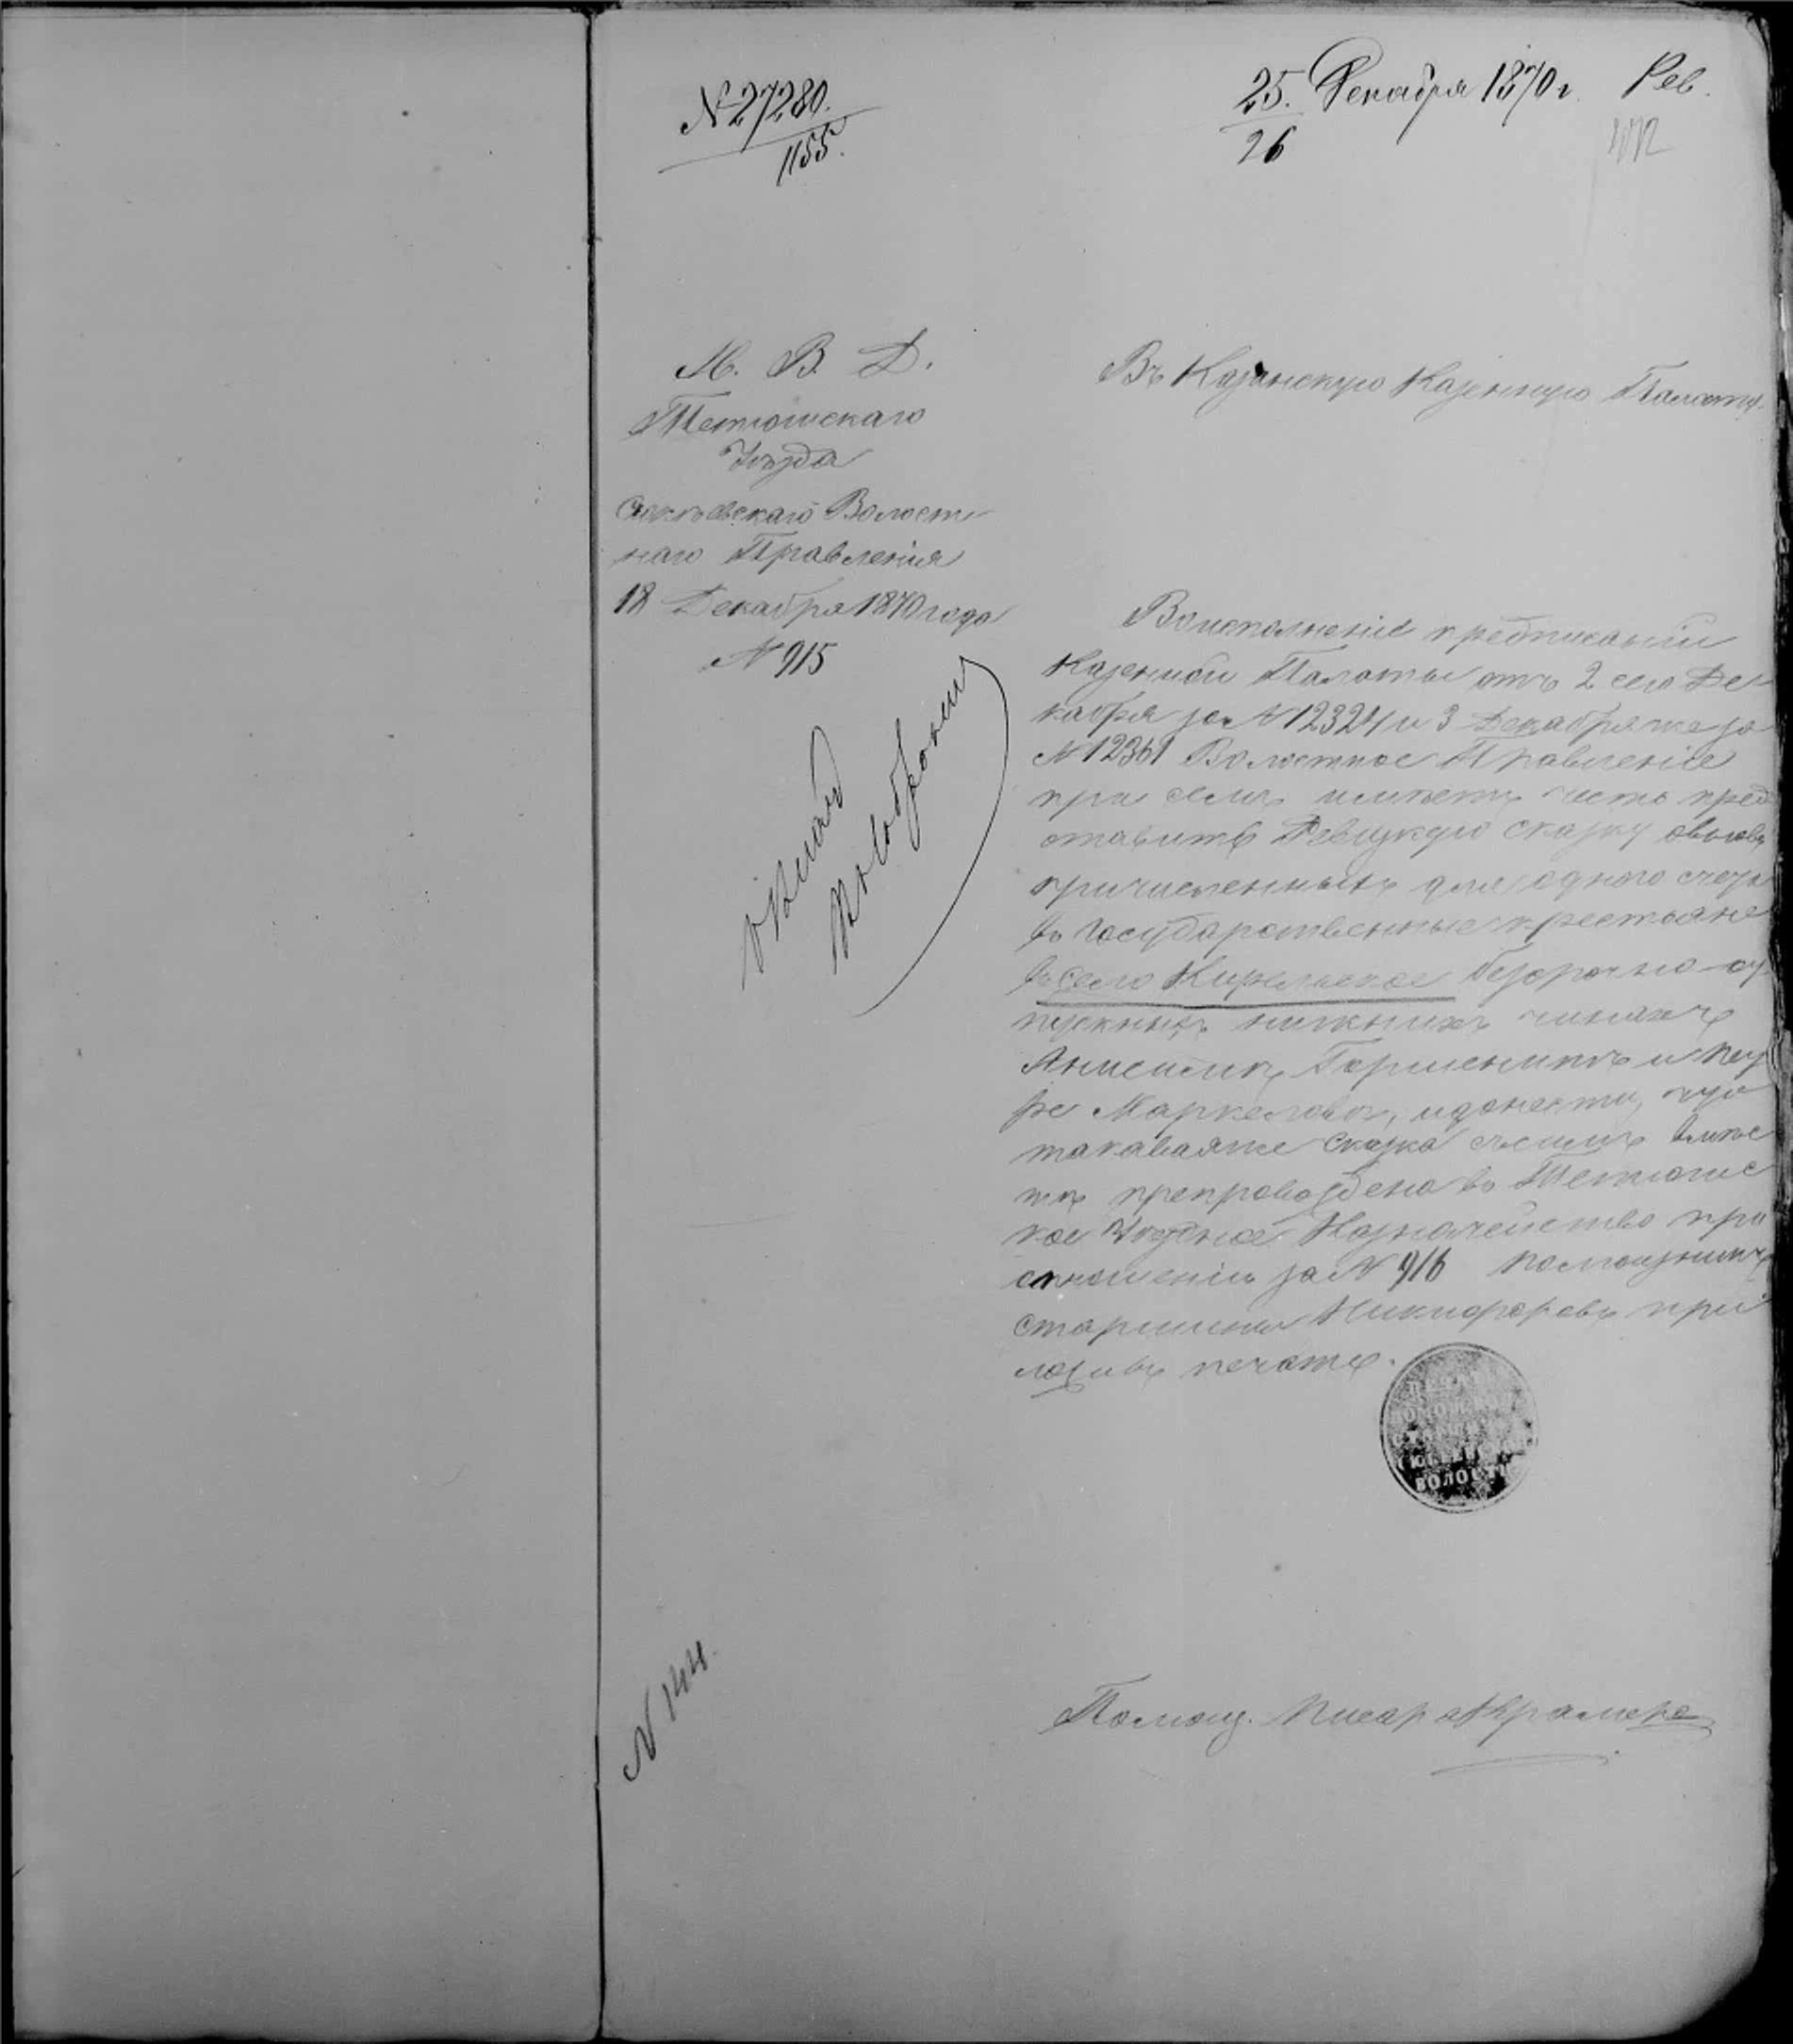 N 27280.
1155.
25. Декабря 1870 г. Рев.
26
М. В. Д.
Тетюшскаго
Уѣзда
Волост-
наго Правленія
18 Декабря 1870 года
N 915
Въ Казанскую Казенную Палату.
Воисполненіе предписаніи
Казенной Палаты отъ 2 сего Де-
кабря за N 12324 и 3 Декабря же за
N 12361 Волостное Правленіе
при семъ имѣетъ честь пред
ставить Ревизкую сказку
причисленныхъ для одного счета
въ Государственные крестьяне
въ село безсрочно-от
пускныхъ нижнихъ чинахъ
и
Маркеловѣ, идонести, что
таковаяже сказка съсимъ вмѣс
тѣ препровождена въ Тетюшс
кое Уѣздное Казначейство при
отношеніи за N 916 Помощникъ
старшины Никифоровъ при
ложивъ печать.
ВОЛОСТИ
N 144.
Помощ. Писаря